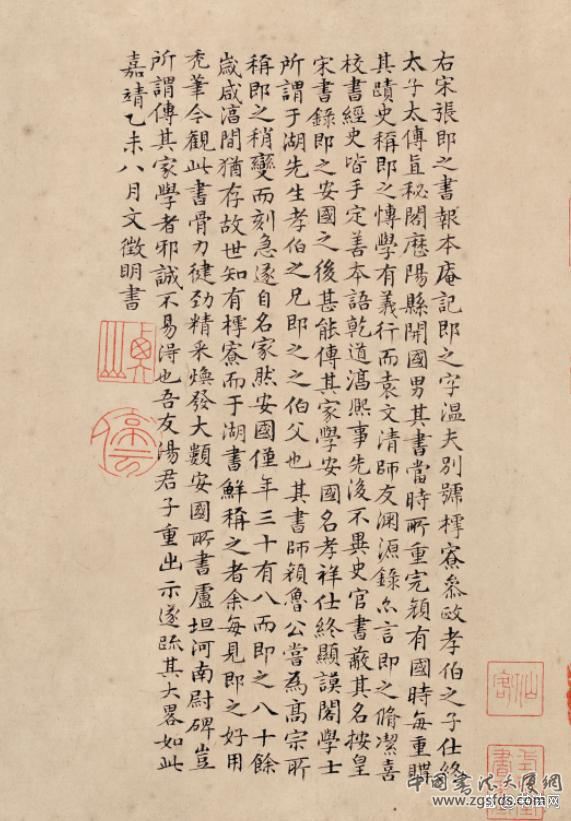 右宋張即之書報本庵記即之字溫夫別號樗寮叅政孝伯之子仕終
太子太傅直秘閣歷陽縣開國男其書當時所重完顏有國時每重購
其蹟史稱即之博學有義行而袁文清師友淵源錄亦言即之脩潔喜
校書經史皆手定善本語乾道淳熙事先後不異史官書蔽其名按皇
宋書錄即之安國之後甚能傳其家學安國名孝祥仕終顯謨閣學士
所謂于湖先生孝伯之兄即之之伯父也其書師顏魯公嘗為高宗所
稱即之稍變而刻急遂自名家然安國僅年三十有八而即之八十餘
歲咸淳間猶存故世知有樗寮而于湖書鮮稱之者余每見即之好用
禿筆今觀此書骨力健勁精采煥發大類安國所書盧坦河南尉碑豈
所謂傳其家學者邪誠不易得也吾友湯君子重出示遂疏其大畧如此
嘉靖乙未八月文徵明書
中国书法大厦网
www.zgsfds.com